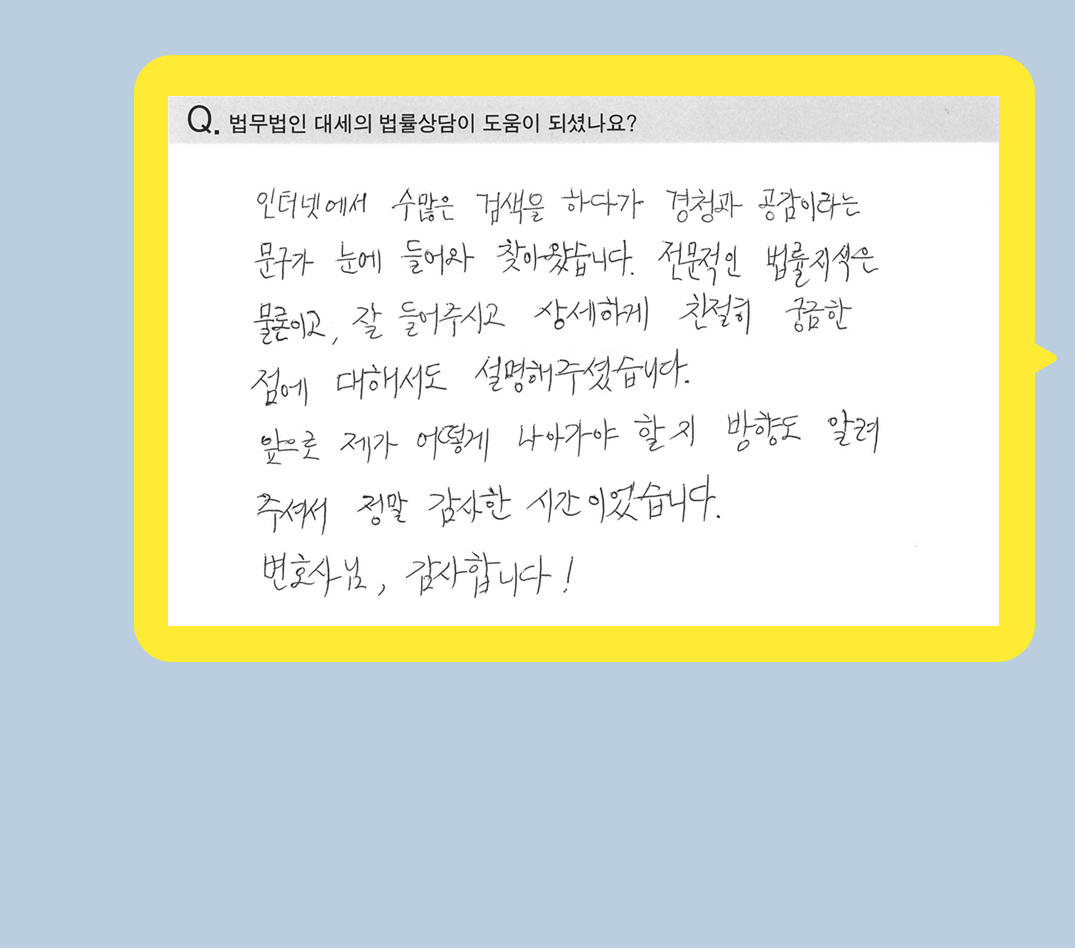 Q. 법무법인 대세의 법률상담이 도움이 되셨나요?
인터넷에서 수많은 검색을 하다가 경청과 공감이라는
문구가 눈에 들어와 찾아왔습니다. 전문적인 법률지식은
물론이고, 잘 들어주시고 상세하게 친절히 궁금한
점에 대해서도 설명해주셨습니다.
앞으로 제가 어떻게 나아가야 할지 방향도 알려
주셔서 정말 감사한 시간이었습니다.
변호사님, 감사합니다!